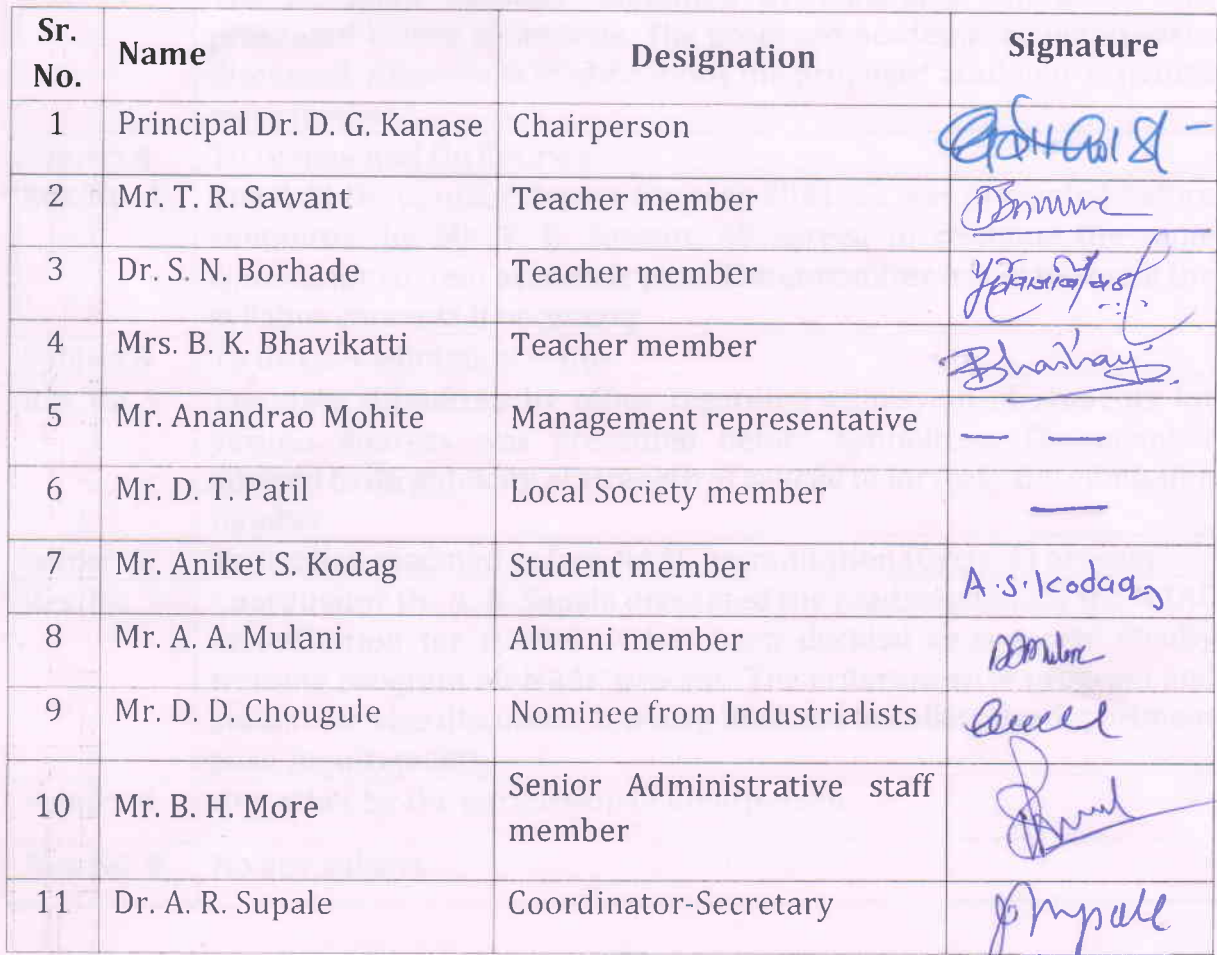 Sr. No. Name Designation Signature
1 Principal Dr. D. G. Kanase Chairperson
2 Mr. T. R. Sawant Teacher member
3 Dr. S. N. Borhade Teacher member
4 Mrs. B. K. Bhavikatti Teacher member
5 Mr. Anandrao Mohite Management representative —
6 Mr. D. T. Patil Local Society member —
7 Mr. Aniket S. Kodag Student member A.S.Kodag
8 Mr. A. A. Mulani Alumni member
9 Mr. D. D. Chougule Nominee from Industrialists
10 Mr. B. H. More Senior Administrative staff
member
11 Dr. A. R. Supale Coordinator-Secretary